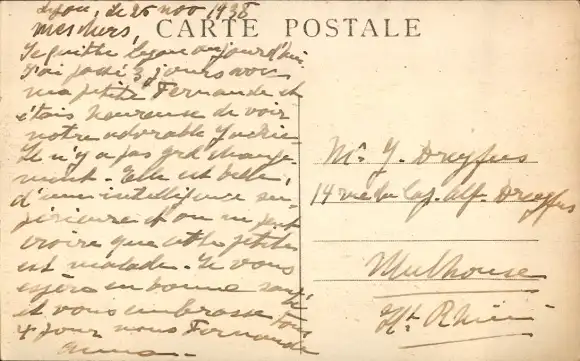 Lyon, le 25 nov 1938
CARTE POSTALE
Mes chers,
Je quitte Lyon aujourd'hui
J'ai passé 3 jours avec
ma petite Fernande et
étais heureuse de voir
notre adorable Jackie
Il n'y a pas grd change-
ment. Elle est belle,
d'une intelligence su-
périeure et on ne peut
croire que cette petite
est malade. Je vous
espère en bonne santé
et vous embrasse tous
pour nous Fernande
Mr. J. Dreyfus
14 rue du Cap. Alf. Dreyfus
Mulhouse
Ht. Rhin